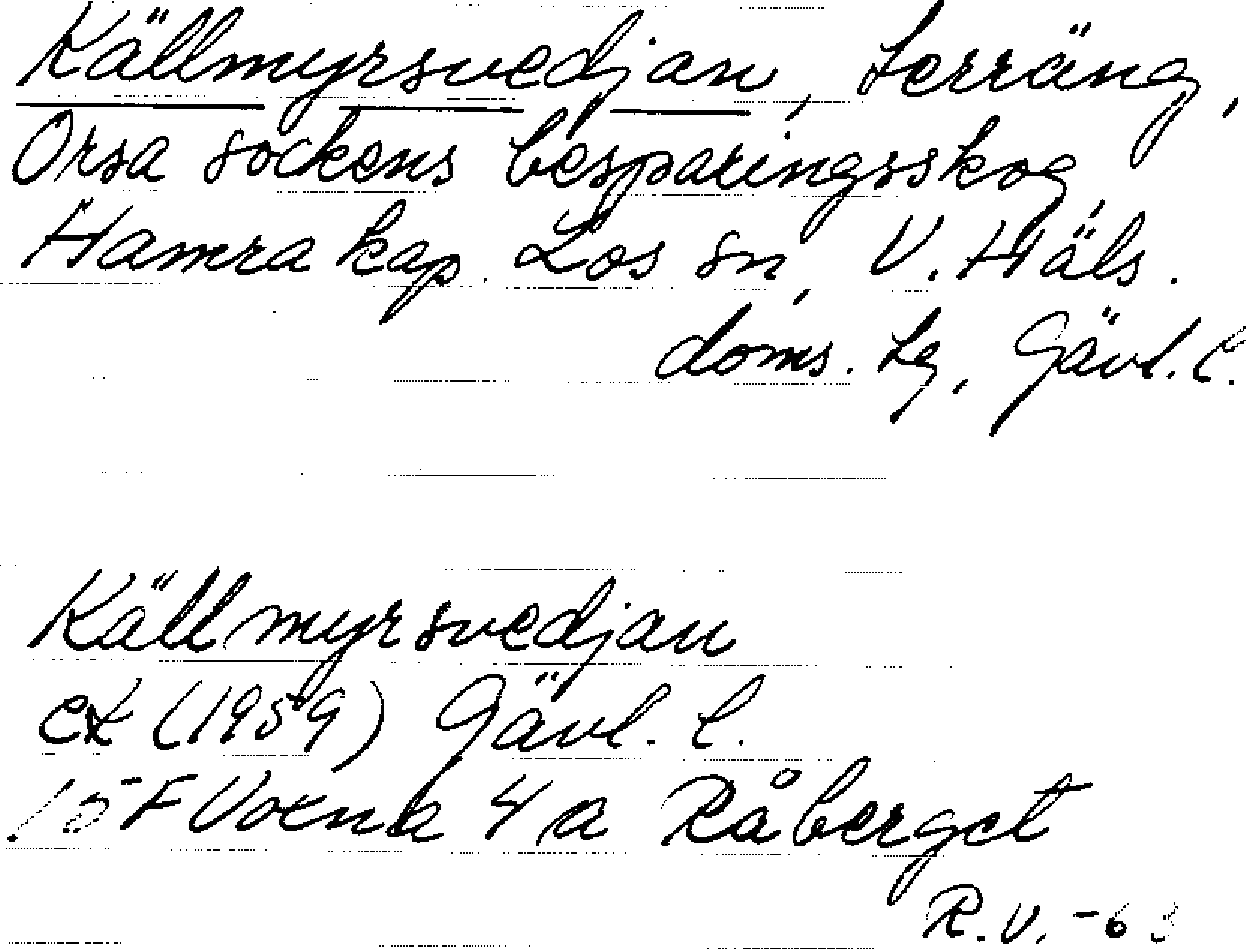 Källmyrsvedjan, terräng,
Orsa sockens besparingsskog,
Hamra kap. Los sn, V. Häls.
doms. tg, Gävl. l.
Källmyrsvedjan
ek (1959) Gävl. l.
15F Voxna 4a Råberget
R.V. -63